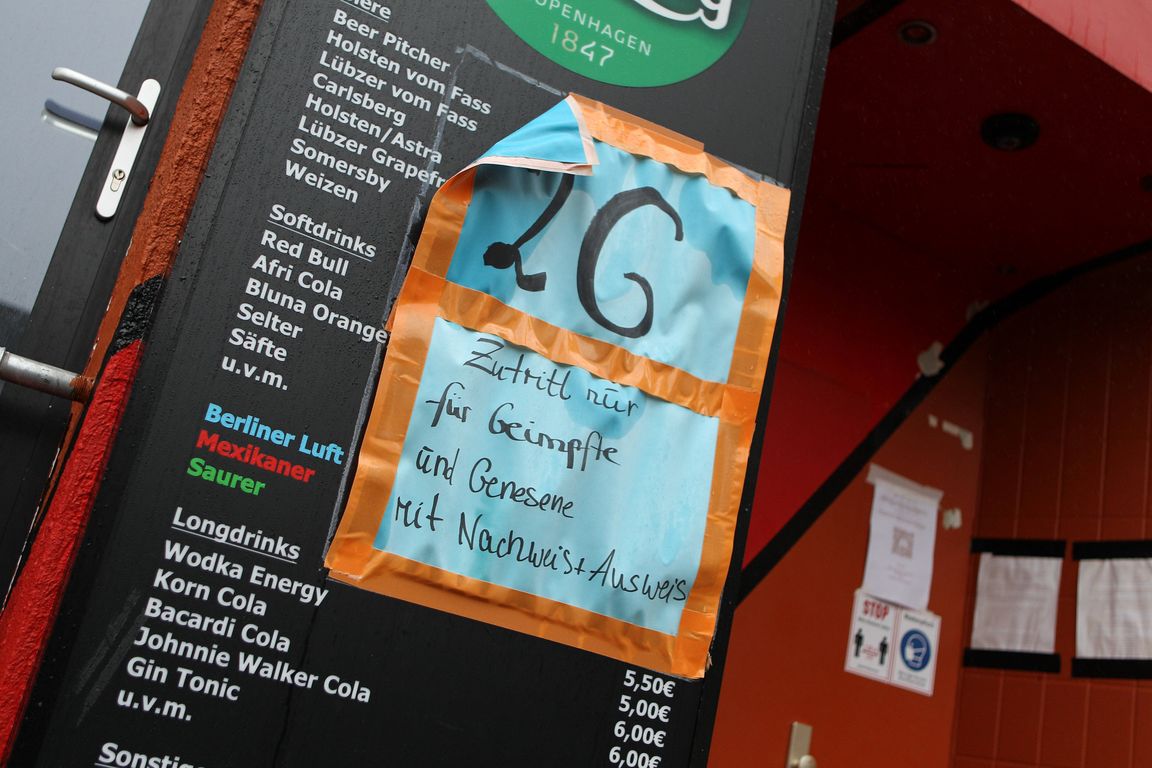 OPENHAGEN
1847
Biere
Beer Pitcher
Holsten vom Fass
Lübzer vom Fass
Carlsberg
Holsten/Astra
Lübzer
Somersby
Weizen
Softdrinks
Red Bull
Afri Cola
Bluna Orange
Selter
Säfte
u.v.m.
Berliner Luft
Mexikaner
Saurer
Longdrinks
Wodka Energy
Korn Cola
Bacardi Cola
Johnnie Walker Cola
Gin Tonic
u.v.m.
5,50€
5,00€
6,00€
6,00€
2G
Zutritt nur
für Geimpfte
und Genesene
mit Nachweis + Ausweis
STOP